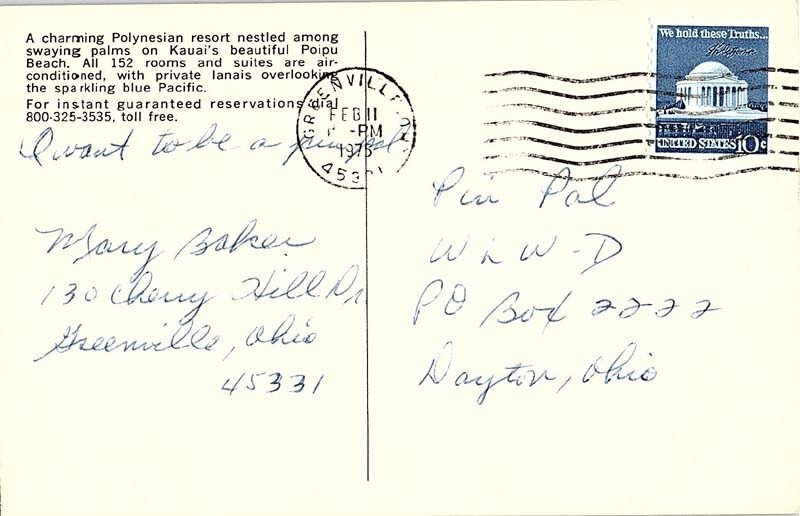 A charming Polynesian resort nestled among
swaying palms on Kauai's beautiful Poipu
Beach. All 152 rooms and suites are air-
conditioned, with private lanais overlooking
the sparkling blue Pacific.
For instant guaranteed reservations dial
800-325-3535, toll free.
I want to be a pin pal
Mary Baker
130 Cherry Hill Dr
Greenville, Ohio
45331
GREENVILLE, OH
FEB 11
PM
1975
45331
We hold these Truths...
UNITED STATES 10c
Pin Pal
W L W - D
PO Box 2222
Dayton, Ohio